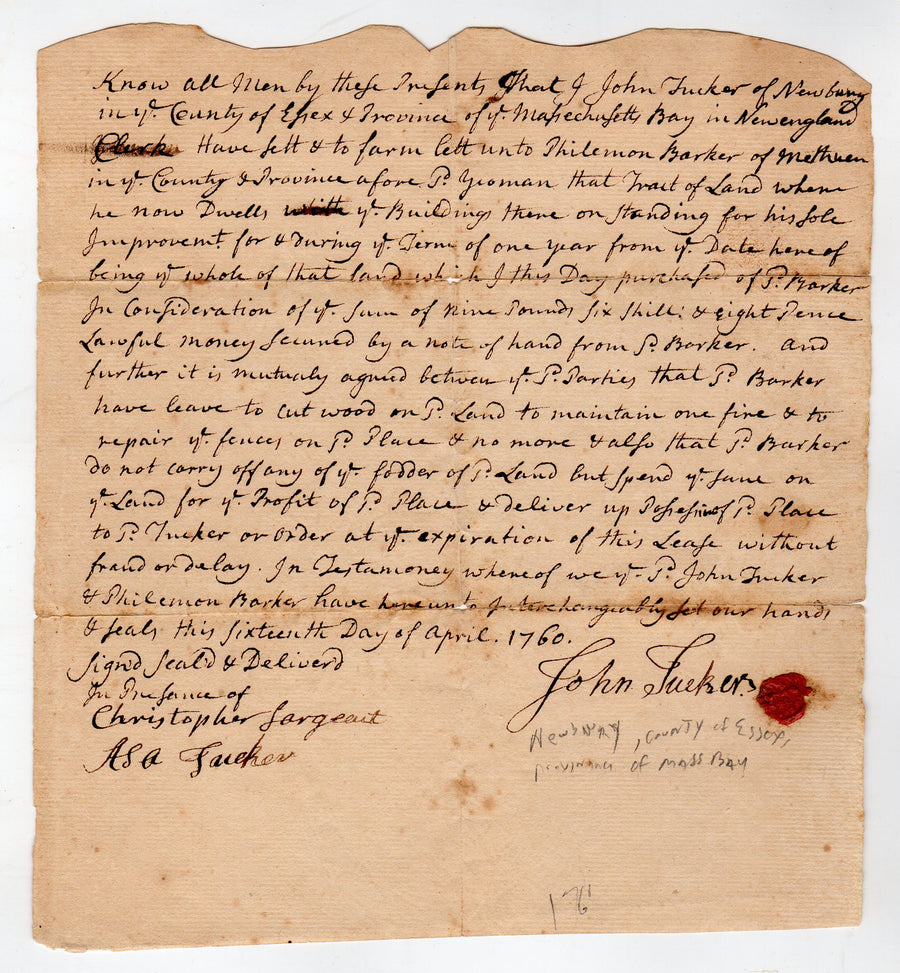 Know all Men by these Presents That I John Tucker of Newbury
in ye. County of Essex & Province of ye. Massechusetts Bay in Newengland
Clerk Have sett & to farm lett unto Philemon Barker of Methuen
in ye. County & Province afore Sd. Yeoman that Tract of Land where
he now Dwells with ye. Buildings there on standing for his sole
Improvemt. for & during ye. Term of one year from ye. Date here of
being ye whole of that land which I this Day purchased of Sd. Barker
In Consideration of ye. sum of nine Pounds six shill: & eight Pence
Lawful money secured by a note of hand from Sd. Barker. and
further it is mutualy agreed between ye. Sd. Parties that Sd. Barker
have leave to cut wood on Sd. Land to maintain one fire & to
repair ye. fences on Sd. Place & no more & also that Sd. Barker
do not carry off any of ye. fodder of Sd. Land but spend ye. same on
ye. Land for ye. Profit of Sd. Place & deliver up Possession of Sd. Place
to Sd. Tucker or order at ye. expiration of this Lease without
fraud or delay. In Testamoney whereof we ye. Sd. John Tucker
& Philemon Barker have hereunto Interchangeably set our hands
& seals this sixteenth Day of April. 1760.
Signd Seal'd & Deliver'd
In Presance of
Christophher Sargeant
Asa Tucker
John Tucker
Newbury, County of Essex,
of Mass Bay